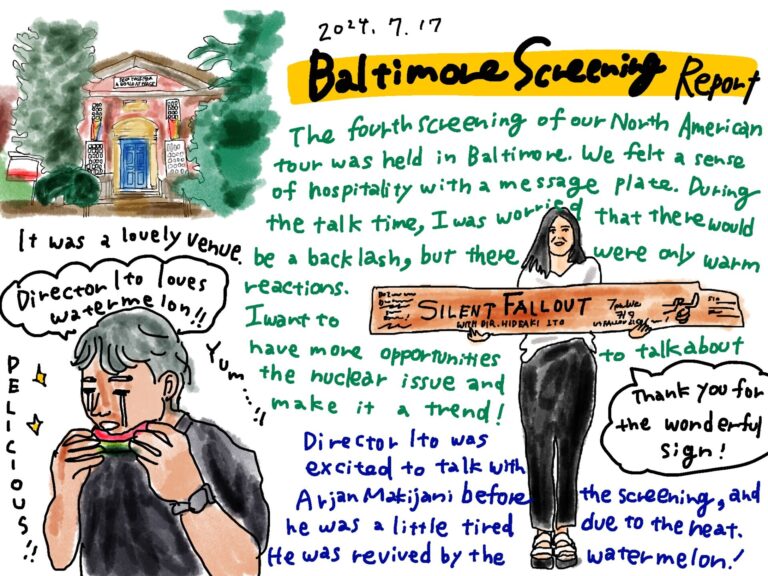 2024. 7. 17
Baltimore Screening Report
The fourth screening of our North American
tour was held in Baltimore. We felt a sense
of hospitality with a message plate. During
the talk time, I was worried that there would
be a backlash, but there were only warm
reactions.
I want to
have more opportunities to talk about
the nuclear issue and
make it a trend!
It was a lovely venue.
Director Ito loves
watermelon!!
Yum....!!
DELICIOUS!!
SILENT FALLOUT
WITH DIR. HIDEAKI ITO
Thank you for
the wonderful
sign!
Director Ito was
excited to talk with
Arjan Makijani before the screening, and
he was a little tired due to the heat.
He was revived by the watermelon!